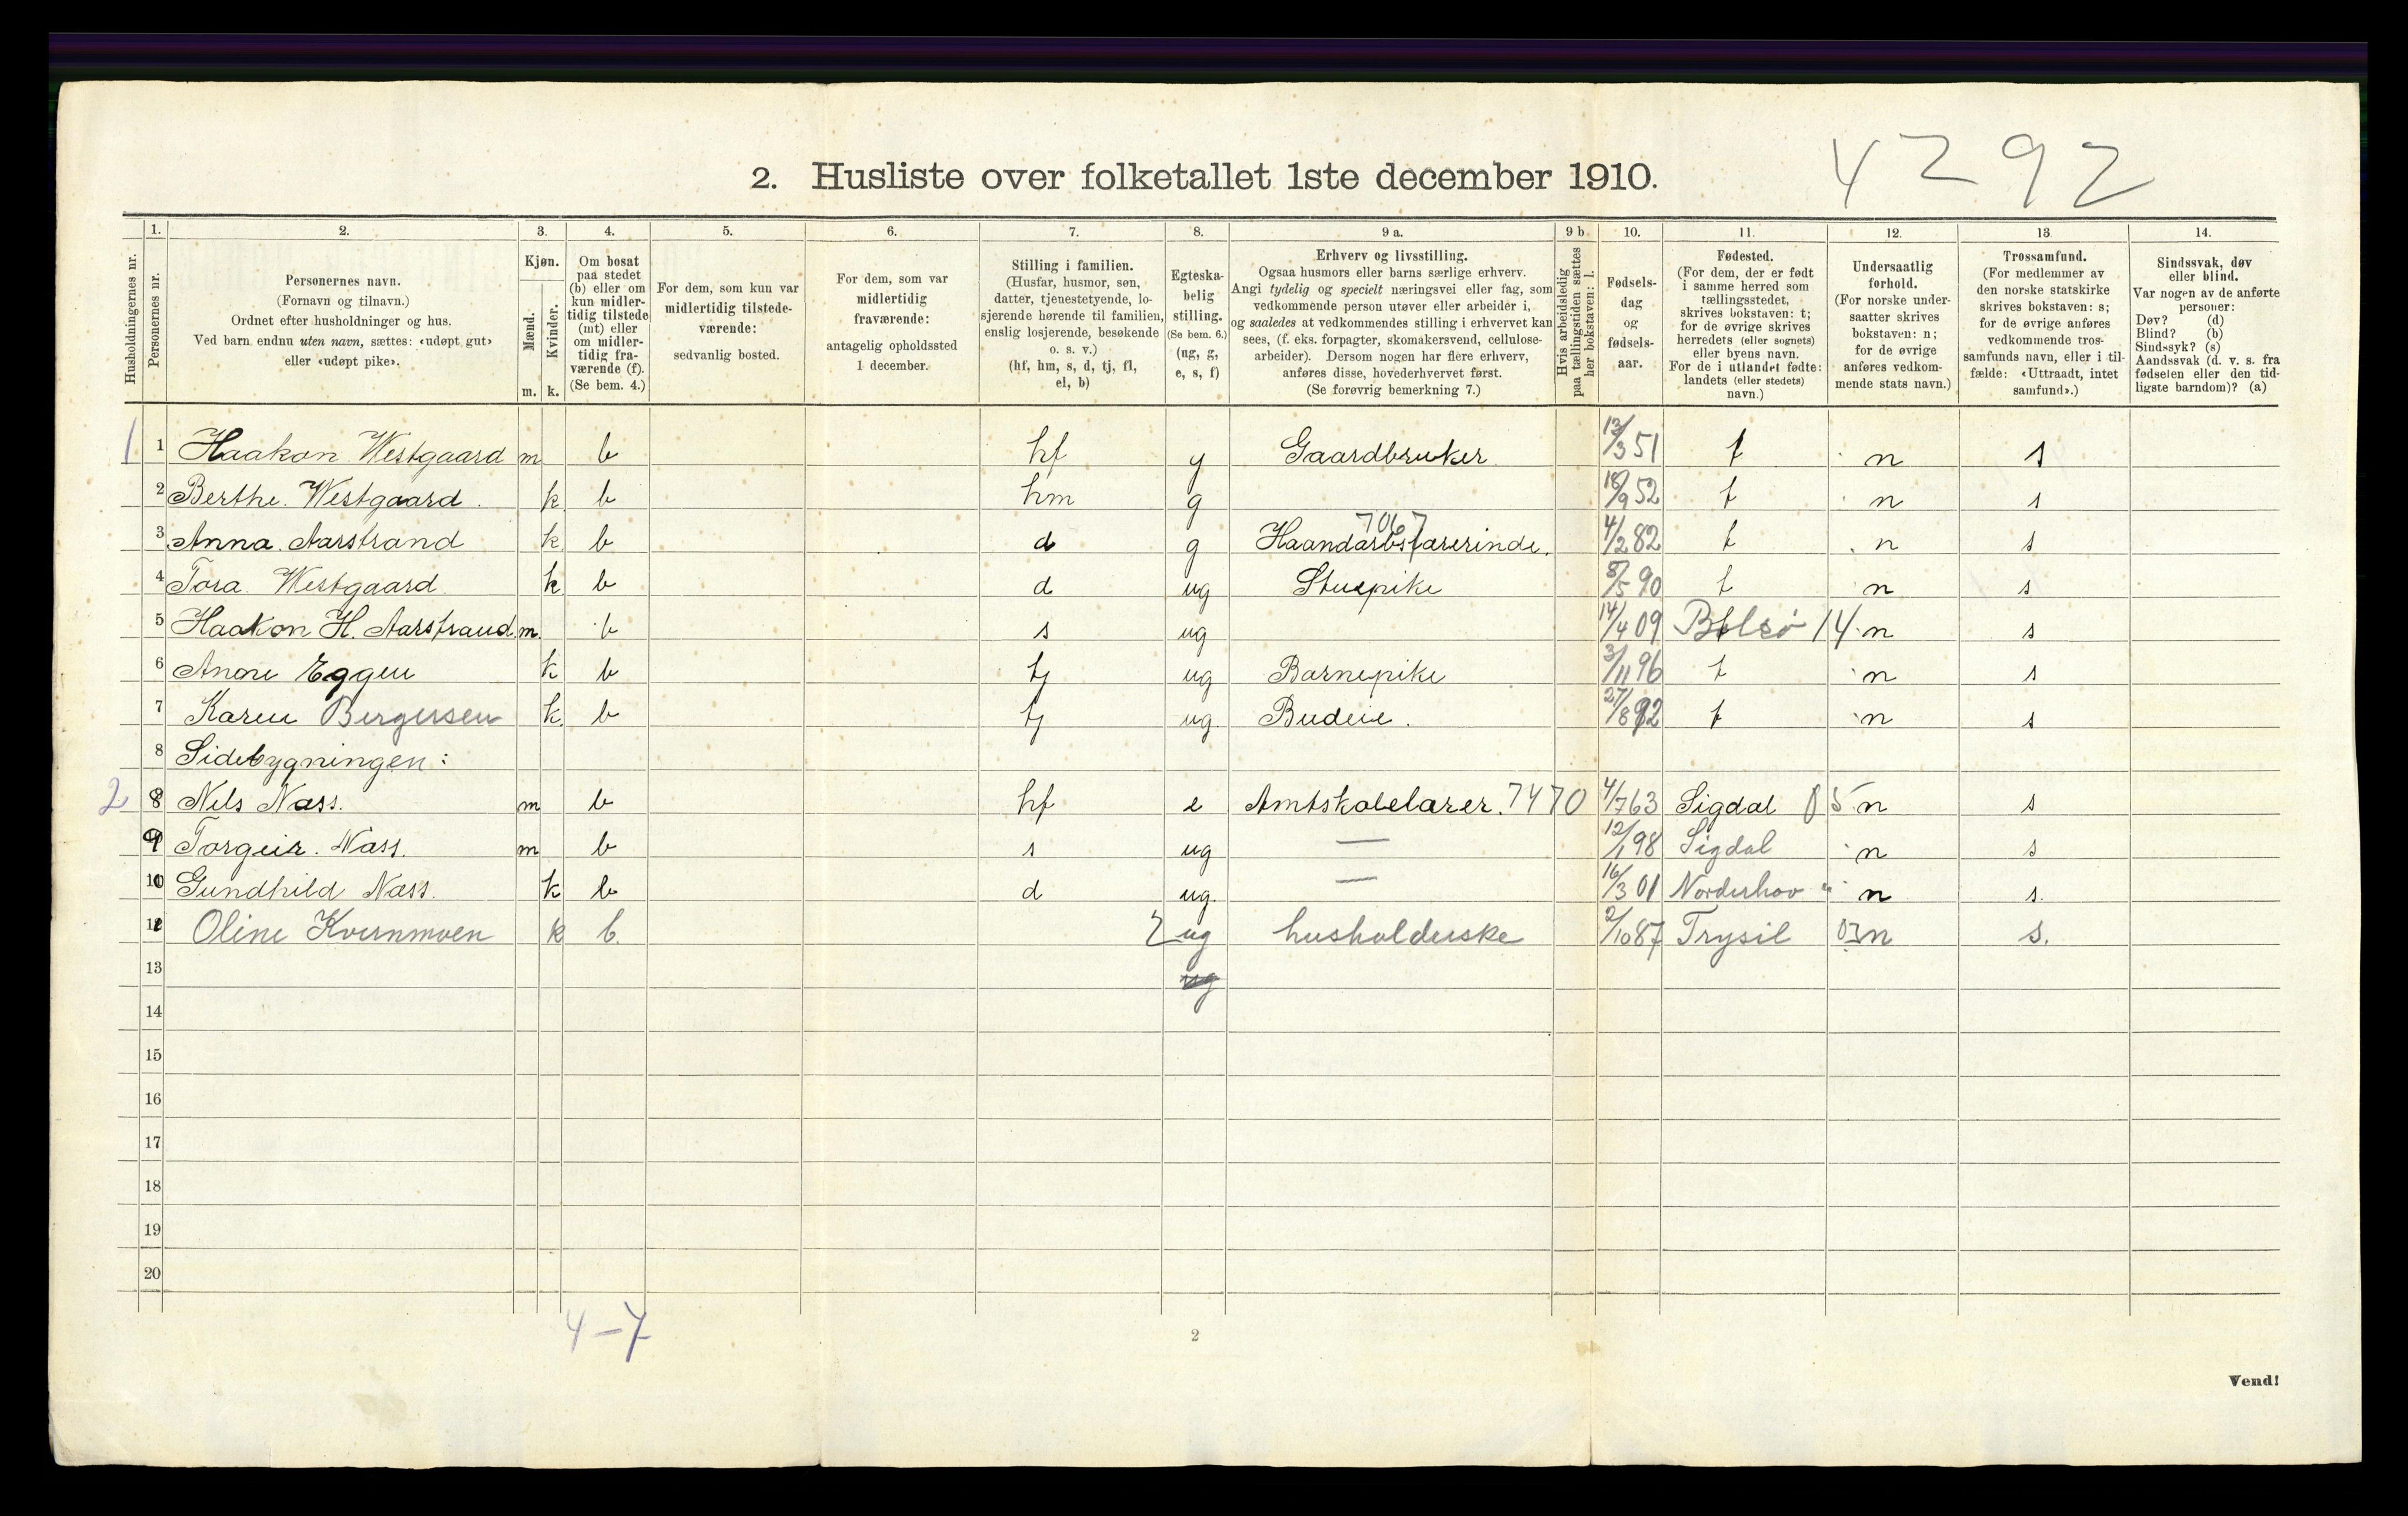 4292
2. Husliste over folketallet 1ste december 1910.
Husholdningernes nr.
1. Personernes nr.
2. Personernes navn. (Fornavn og tilnavn.) Ordnet efter husholdninger og hus. Ved barn endnu uten navn, sættes: «udøpt gut» eller «udøpt pike».
3. Kjøn. Mænd. m. Kvinder. k.
4. Om bosat paa stedet (b) eller om kun midlertidig tilstede (mt) eller om midlertidig fraværende (f). (Se bem. 4.)
5. For dem, som kun var midlertidig tilstedeværende: sedvanlig bosted.
6. For dem, som var midlertidig fraværende: antagelig opholdssted 1 december.
7. Stilling i familien. (Husfar, husmor, søn, datter, tjenestetyende, losjerende hørende til familien, enslig losjerende, besøkende o. s. v.) (hf, hm, s, d, tj, fl, el, b)
8. Egteskabelig stilling. (Se bem. 6.) (ug, g, e, s, f)
9 a. Erhverv og livsstilling. Ogsaa husmors eller barns særlige erhverv. Angi tydelig og specielt næringsvei eller fag, som vedkommende person utøver eller arbeider i, og saaledes at vedkommendes stilling i erhvervet kan sees, (f. eks. forpagter, skomakersvend, cellulosearbeider). Dersom nogen har flere erhverv, anføres disse, hovederhvervet først. (Se forøvrig bemerkning 7.)
9 b Hvis arbeidsledig paa tællingstiden sættes her bokstaven: l.
10. Fødselsdag og fødselsaar.
11. Fødested. (For dem, der er født i samme herred som tællingsstedet, skrives bokstaven: t; for de øvrige skrives herredets (eller sognets) eller byens navn. For de i utlandet fødte: landets (eller stedets) navn.)
12. Undersaatlig forhold. (For norske undersaatter skrives bokstaven: n; for de øvrige anføres vedkommende stats navn.)
13. Trossamfund. (For medlemmer av den norske statskirke skrives bokstaven: s; for de øvrige anføres vedkommende trossamfunds navn, eller i tilfælde: «Uttraadt, intet samfund».)
14. Sindssvak, døv eller blind. Var nogen av de anførte personer: Døv? (d) Blind? (b) Sindssyk? (s) Aandssvak (d. v. s. fra fødselen eller den tidligste barndom)? (a)
1 1 Haakon Westgaard m b hf g Gaardbruker 12/3 51 t n s
2 Berthe Westgaard k b hm g 18/9 52 t n s
7067
3 Anna Aarstrand k b d g Haandarbslærerinde. 4/2 82 t n s
4 Tora Westgaard k b d ug Stuepike 8/5 90 t n s
5 Haakon H. Aarstrand m b s ug 14/4 09 Bolsø 14 n s
6 Anne Eggen k b tj ug Barnepike 3/11 96 t n s
7 Karen Bergersen k b tj ug Budeie. 27/8 92 t n s
8 Sidebygningen:
2 8 Nils Næss. m b hf e Amtskolelærer. 7470 4/7 63 Sigdal 05 n s
9 Torgeir Næss. m b s ug — 12/1 98 Sigdal n s
10 Gundhild Næss. k b d ug. — 16/3 01 Norderhov " n s.
11 Oline Kvernmoen k b. ug husholderske 2/10 87 Trysil 03 n s.
13 ug
14
15
16
17
18
19
20
4-7
2
Vend!